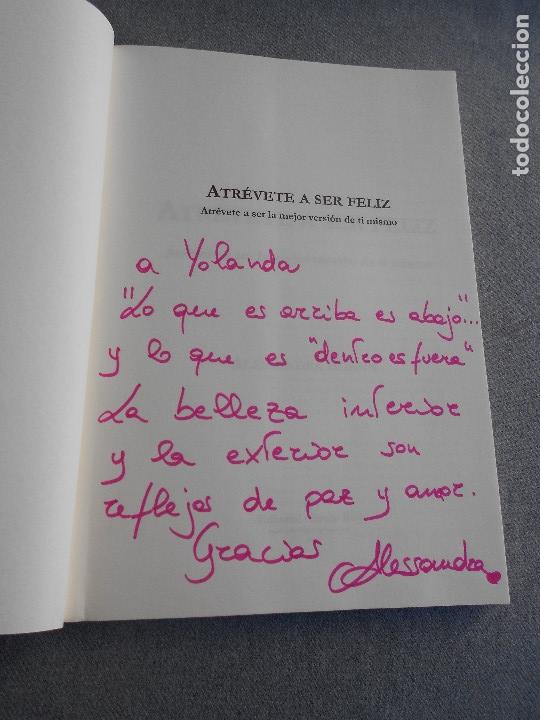 ATRÉVETE A SER FELIZ
Atrévete a ser la mejor versión de ti mismo
a Yolanda
"Lo que es arriba es abajo"...
y lo que es "dentro es fuera"
La belleza interior
y la exterior son
reflejos de paz y amor.
Gracias Alessandra
todocoleccion